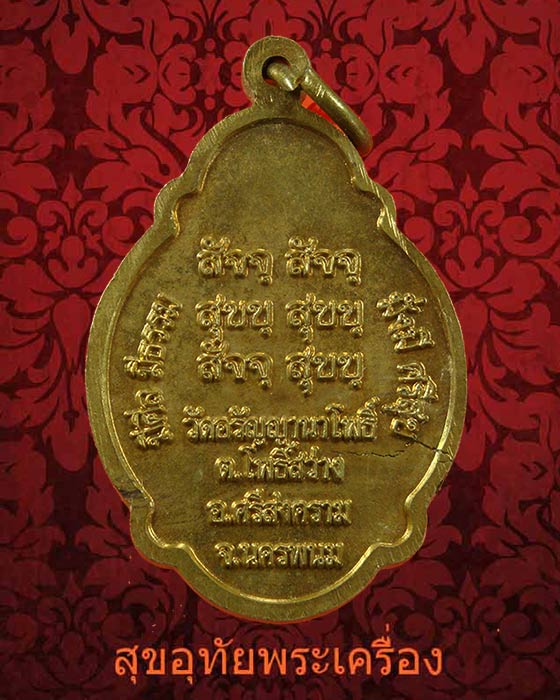 สัจจุ สัจจุ
สุขขุ สุขขุ
สัจจุ สุขขุ
มีธรรม
มั่งมี ศรีสุข
วัดอรัญญานาโพธิ์
ต.โพธิ์สว่าง
อ.ศรีสงคราม
จ.นครพนม
สุขอุทัยพระเครื่อง